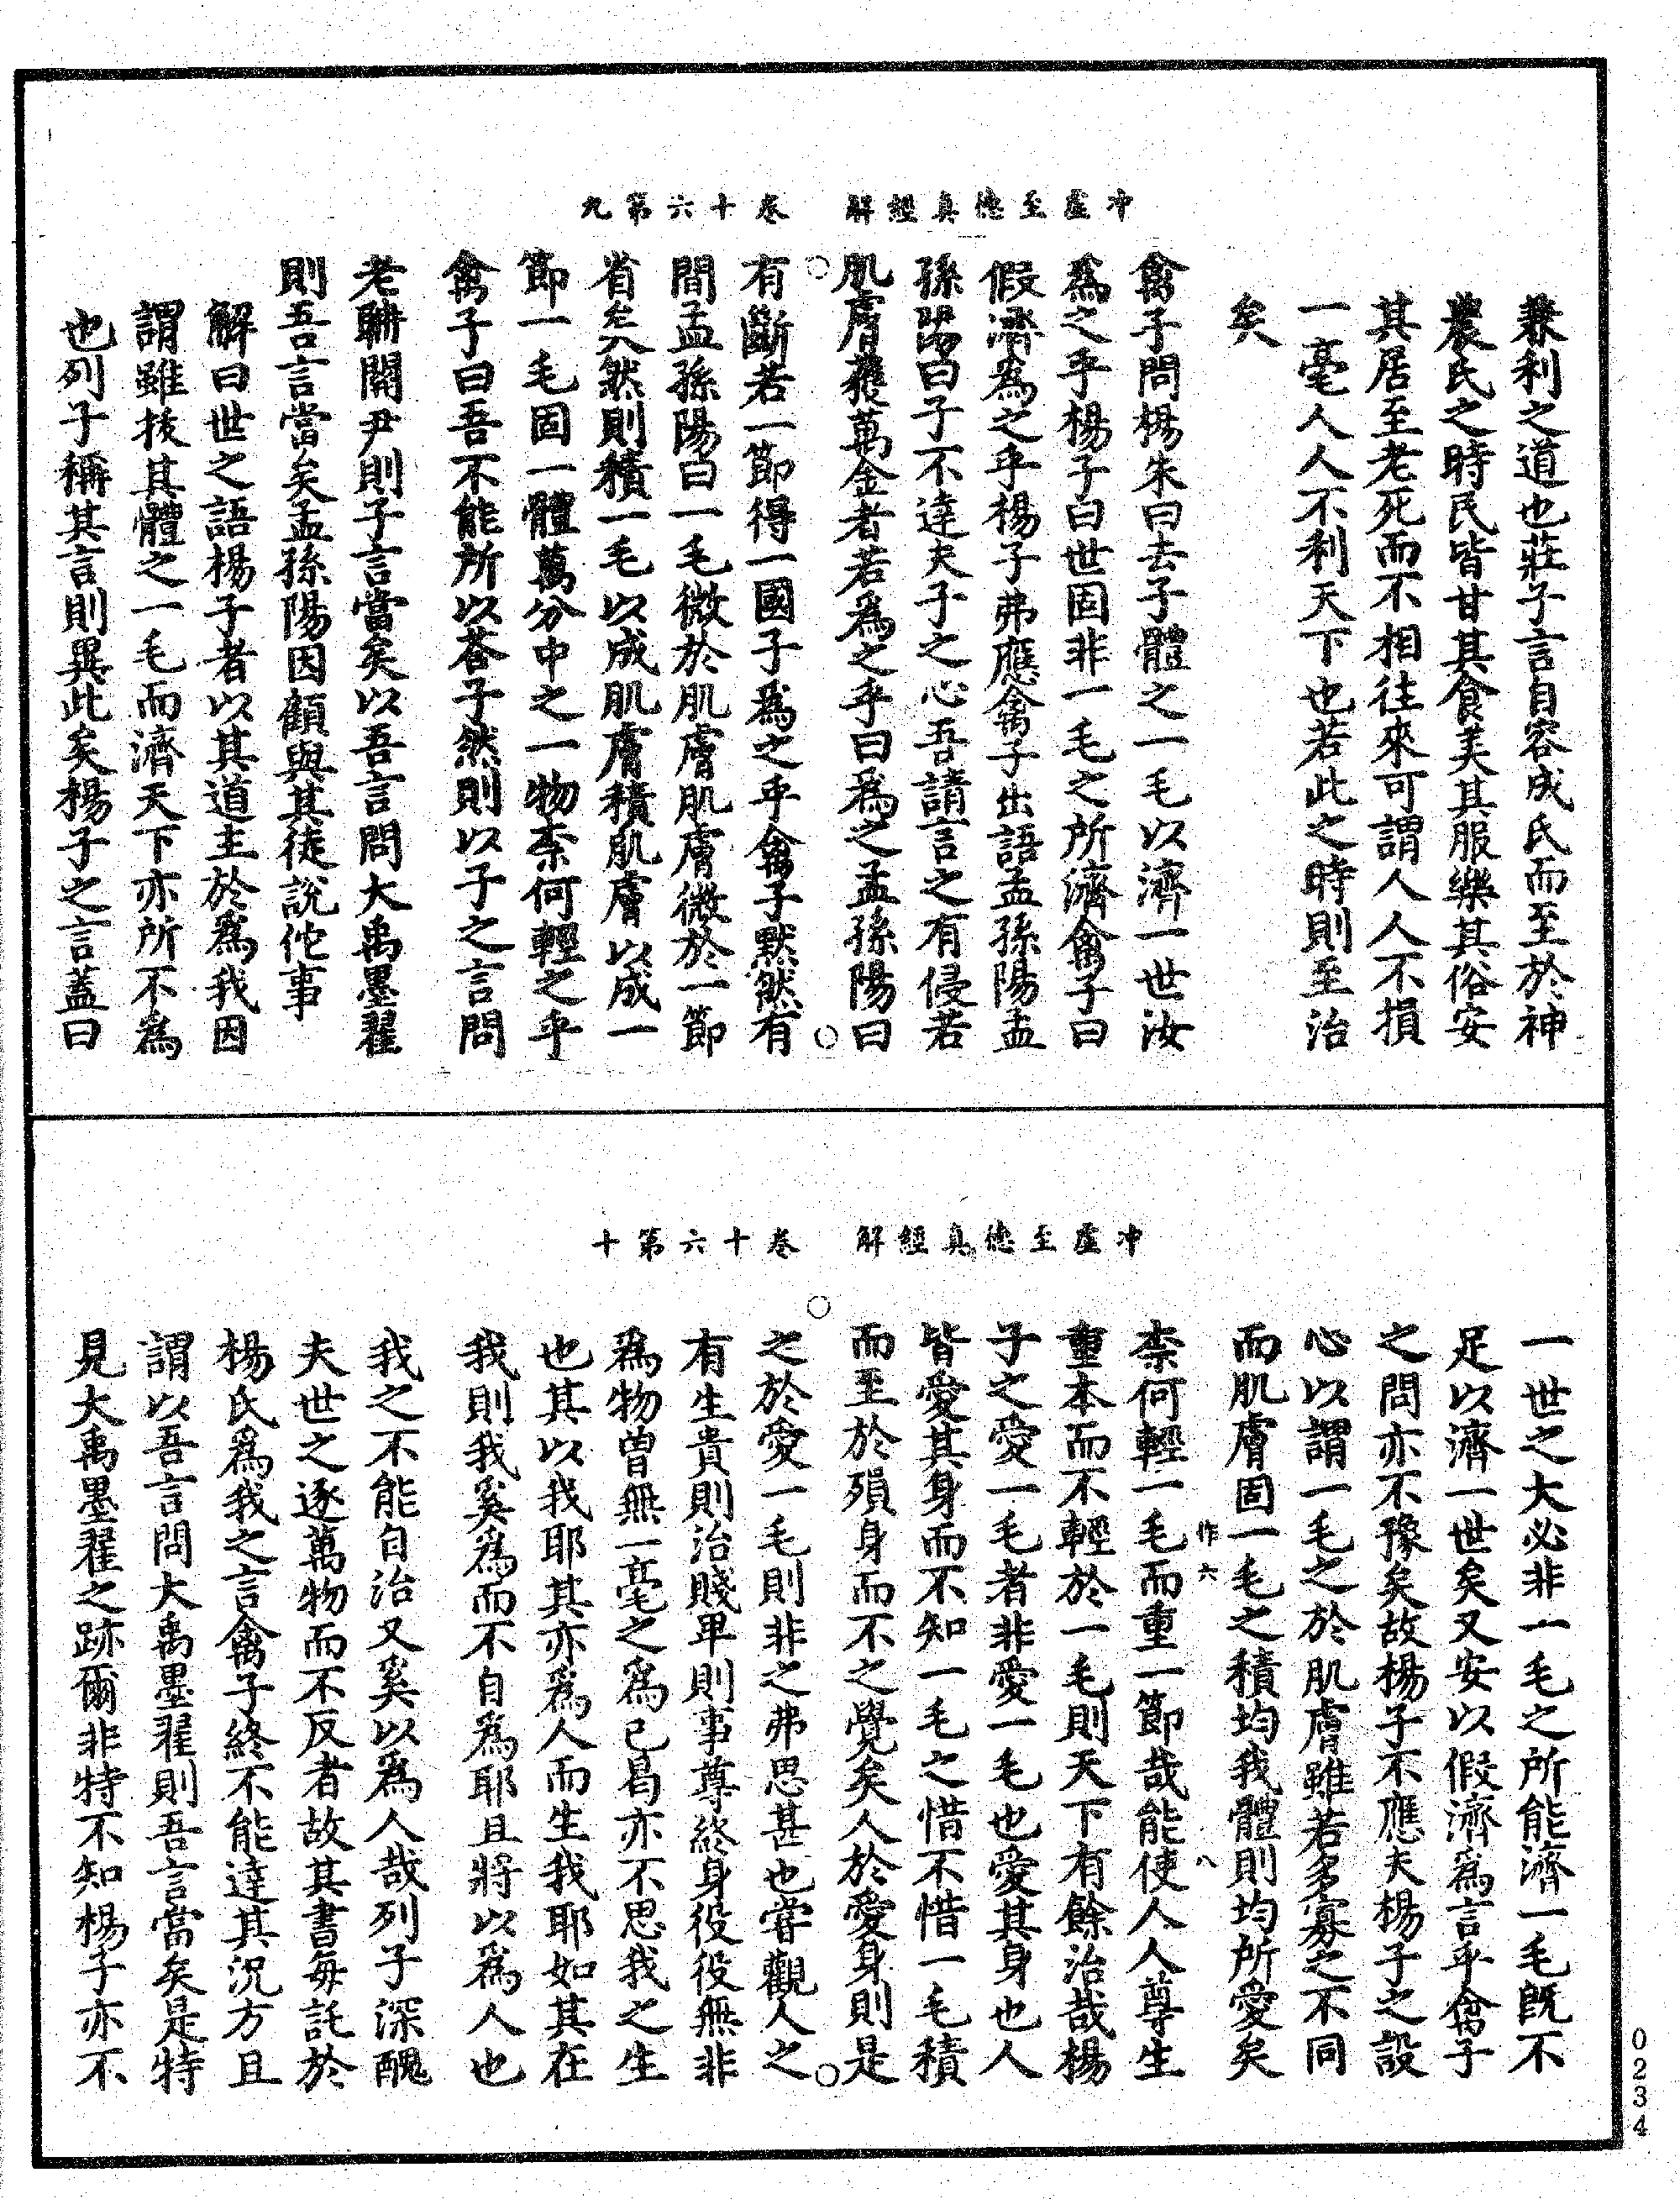 沖虛至德真經解　卷十六第九
兼利之道也莊子言自容成氏而至於神
農氏之時民皆甘其食美其服樂其俗安
其居至老死而不相往來可謂人人不損
一毫人人不利天下也若此之時則至治
矣
禽子問楊朱曰去子體之一毛以濟一世汝
爲之乎楊子曰世固非一毛之所濟禽子曰
假濟爲之乎楊子弗應禽子出語孟孫陽孟
孫陽曰子不達夫子之心吾請言之有侵若
肌膚獲萬金者若爲之乎曰爲之孟孫陽曰
有斷若一節得一國子爲之乎禽子黙然有
間孟孫陽曰一毛微於肌膚肌膚微於一節
省矣然則積一毛以成肌膚積肌膚以成一
節一毛固一體萬分中之一物柰何輕之乎
禽子曰吾不能所以荅子然則以子之言問
老聃關尹則子言當矣以吾言問大禹墨翟
則吾言當矣孟孫陽因顧與其徒說佗事
解曰世之語楊子者以其道主於爲我因
謂雖拔其體之一毛而濟天下亦所不爲
也列子稱其言則異此矣楊子之言蓋曰
沖虛至德真經解　卷十六第十
一世之大必非一毛之所能濟一毛旣不
足以濟一世矣又安以假濟爲言乎禽子
之問亦不豫矣故楊子不應夫楊子之設
心以謂一毛之於肌膚雖若多寡之不同
而肌膚固一毛之積均我體則均所愛矣
作六　八
柰何輕一毛而重一節哉能使人人尊生
重本而不輕於一毛則天下有餘治哉楊
子之愛一毛者非愛一毛也愛其身也人
皆愛其身而不知一毛之惜不惜一毛積
而至於殞身而不之覺矣人於愛身則是
之於愛一毛則非之弗思甚也嘗觀人之
有生貴則治賤卑則事尊終身役役無非
爲物曾無一毫之爲己曷亦不思我之生
也其以我耶其亦爲人而生我耶如其在
我則我奚爲而不自爲耶且將以爲人也
我之不能自治又奚以爲人哉列子深醜
夫世之逐萬物而不反者故其書每託於
楊氏爲我之言禽子終不能達其況方且
謂以吾言問大禹墨翟則吾言當矣是特
見大禹墨翟之跡爾非特不知楊子亦不
0234